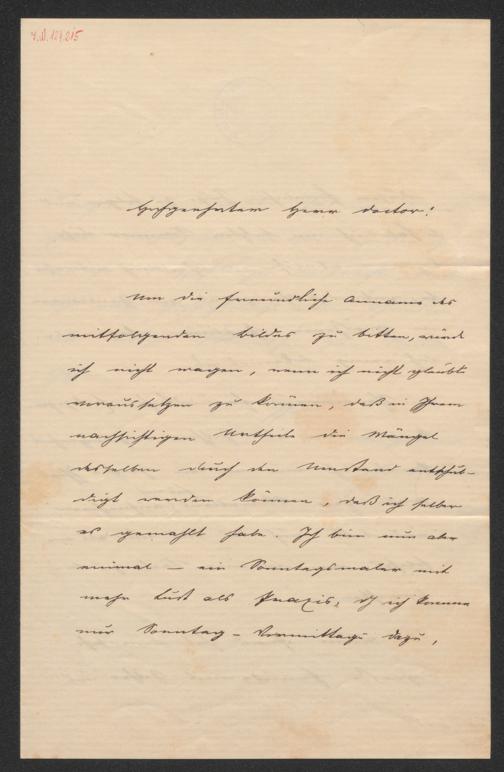 I.N. 121.215
Hochgeehrter Herr Doctor!
Um die freundliche Anname des
mitfolgenden Bildes zu bitten, würde
ich nicht wagen, wenn ich nicht glaubte
voraussetzen zu können, daß in Ihrem
nachsichtigen Urtheile die Mängel
desselben durch den Umstand entschul-
digt werden können, daß ich selber
es gemahlt habe. Ich bin nun aber
einmal – ein Sonntagsmaler mit
mehr Lust als Praxis, ich komme
nur Sonntag-Vormittags dazu,